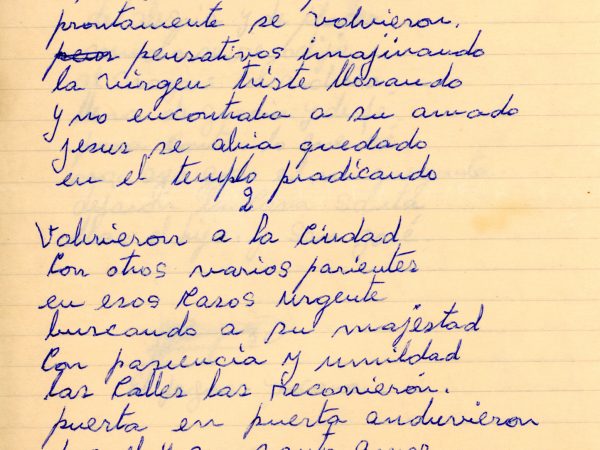 prontamente se volvieron.
pensativos imajinando
la virgen triste llorando
y no encontraba a su amado
jesus se abia quedado
en el templo pradicando
2
Valvrieron a la Ciudad
Con otros varios parientes
en esos Casos Urgente
buscando a su majestad
Con pasiencia y umildad
las Calles las Recorrieron.
puerta en puerta anduvieron